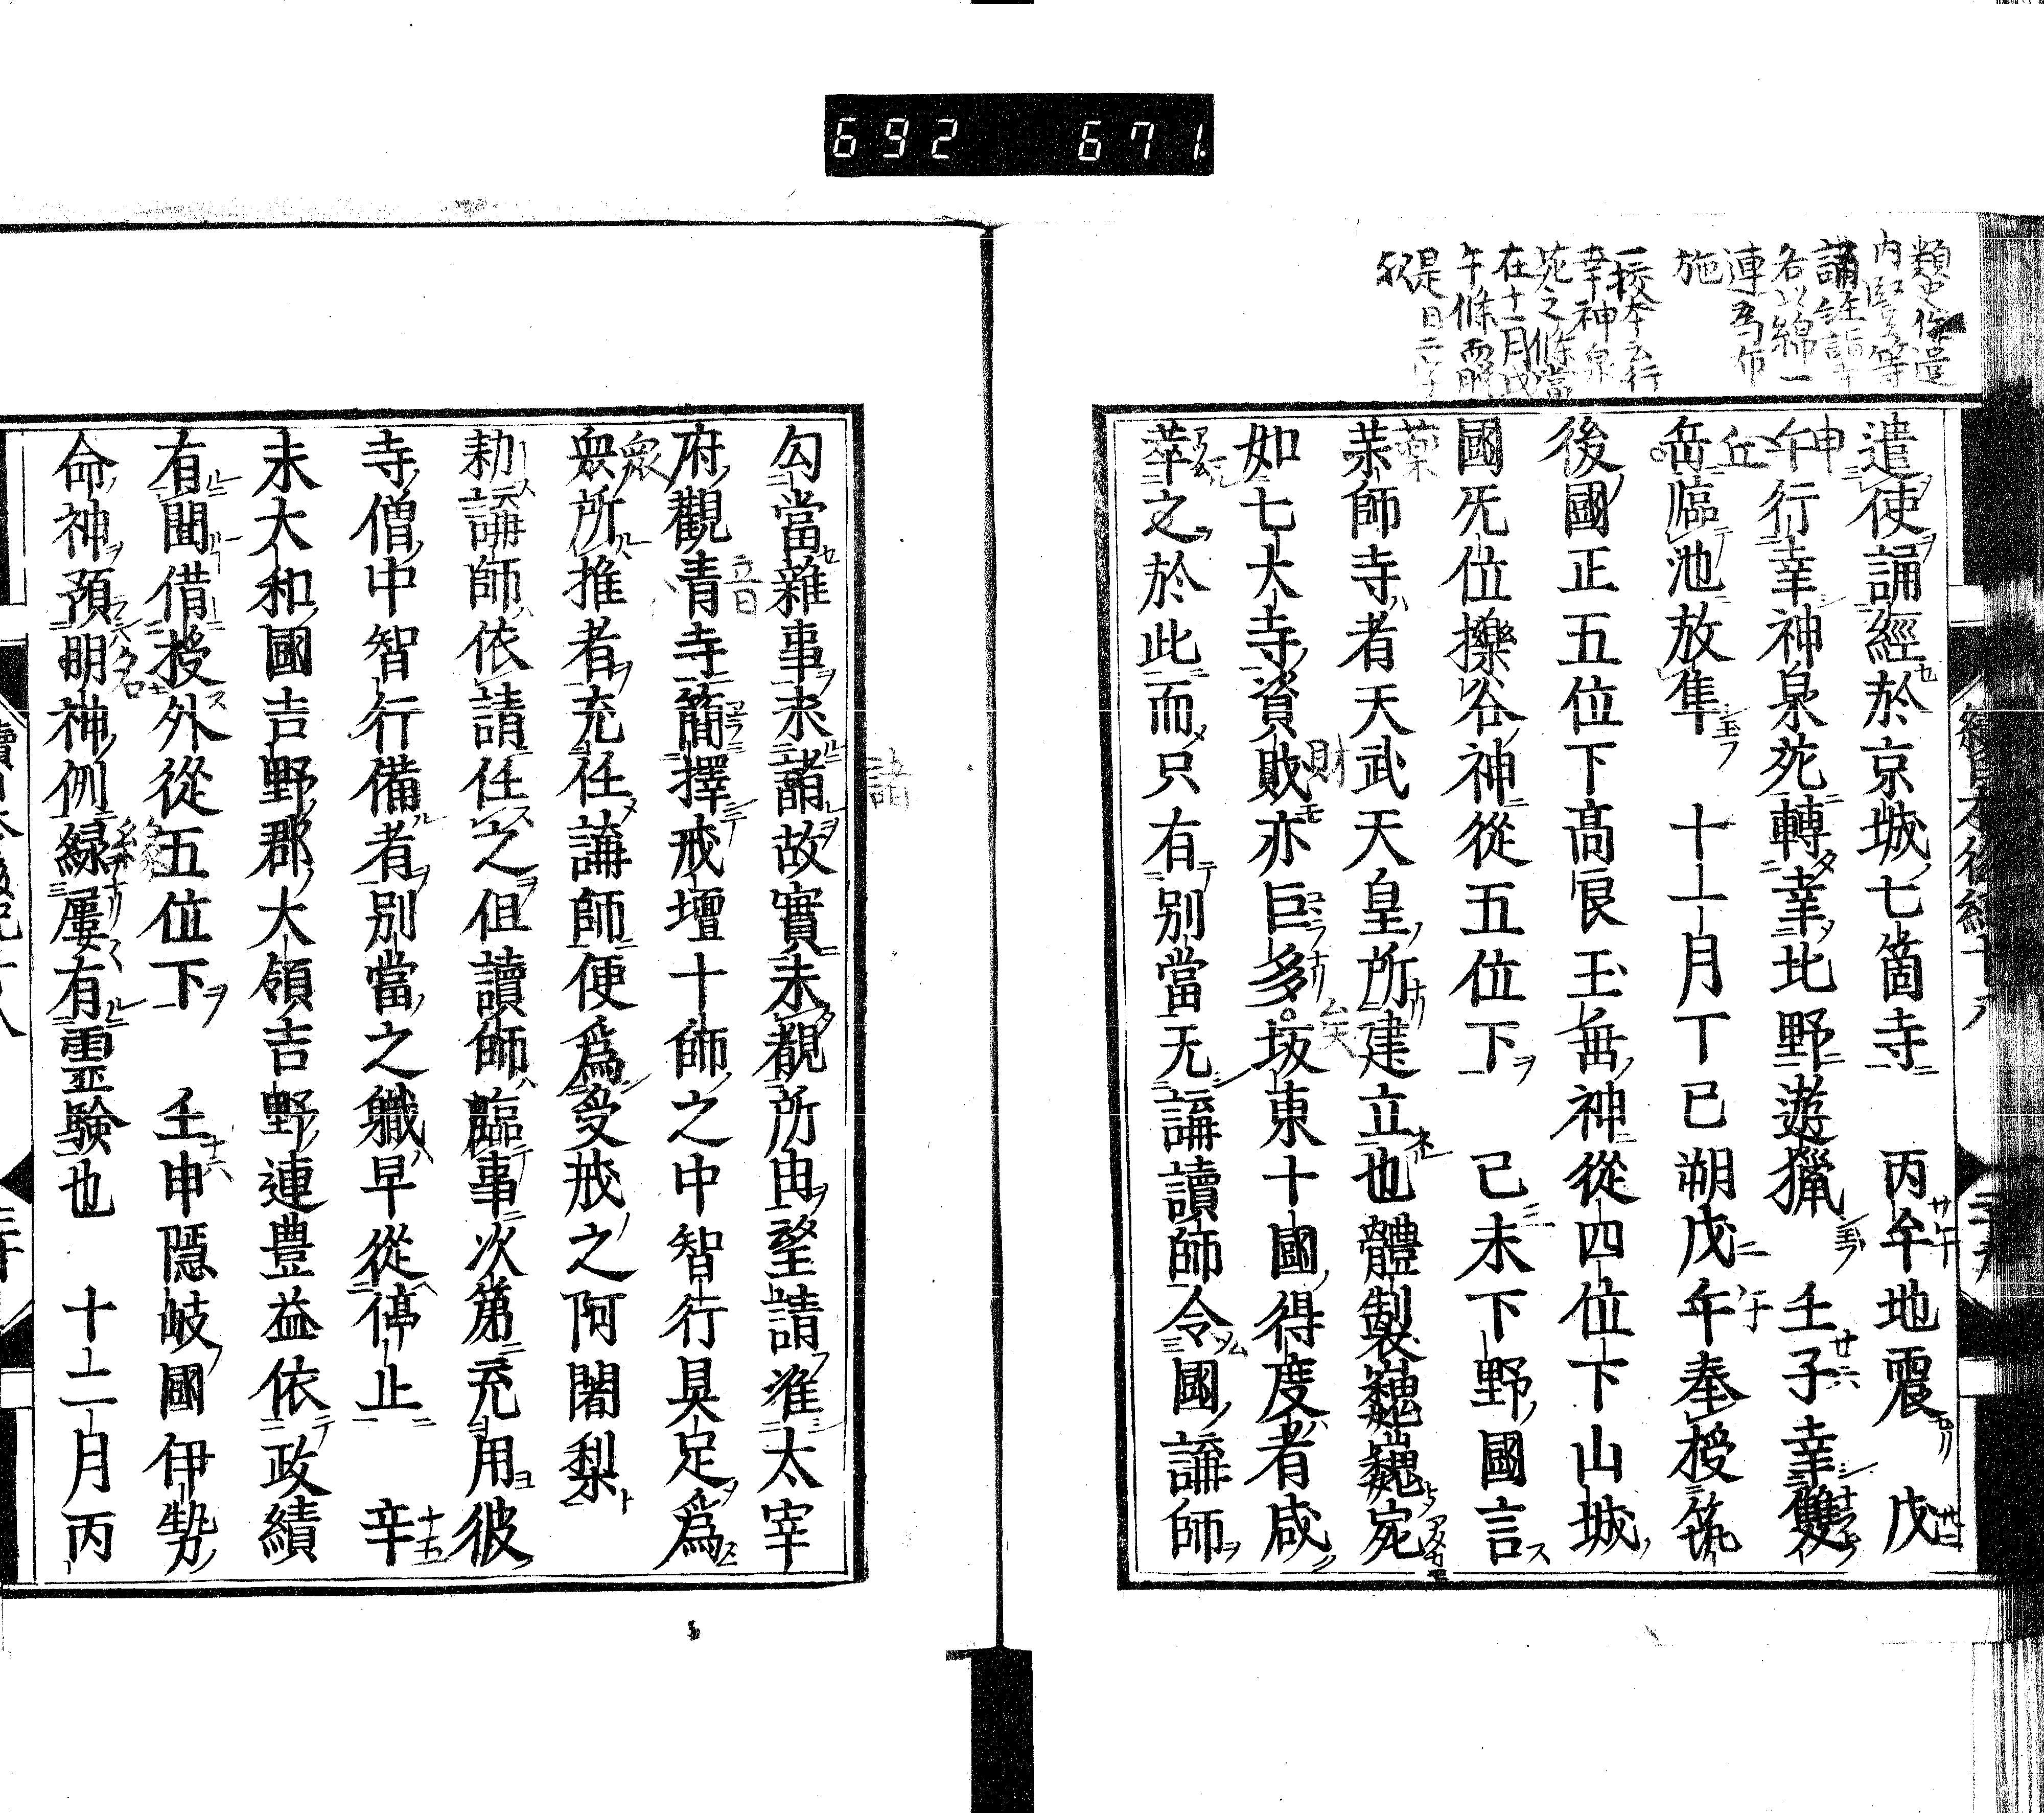 692 671
類史作遣
内竪等
誦経諸寺
名以綿一
連爲布
施
一授本云行
幸神泉
苑之條當
在十一月戊
午條而脱
是日二字
欤
遣使誦經於京城七箇寺 丙午地震 戊
午行幸神泉苑轉幸北野遊獵 壬子幸雙
岳臨池放隼 十一月丁巳朔戊午奉授筑
後國正五位下高良玉垂神從四位下山城
國无位櫟谷神從五位下 己未下野國言
藥師寺者天武天皇所建立也體製巍巍宛
如七大寺資敗亦巨多坂東十國得度者咸
萃之於此而只有別當无講讀師令國講師
勾當雜事求諸故實未覩所由望請准太宰
府觀青寺簡擇戒壇十師之中智行具足爲
衆所推者充任講師便爲受戒之阿闍梨
勅講師依請任之但讀師臨事次第充用彼
寺僧中智行備者別當之職早從停止 辛
未大和國吉野郡大領吉野連豊益依政績
有聞借授外從五位下 壬申隱岐國伊勢
命神預明神例緑屢有靈驗也 十二月丙